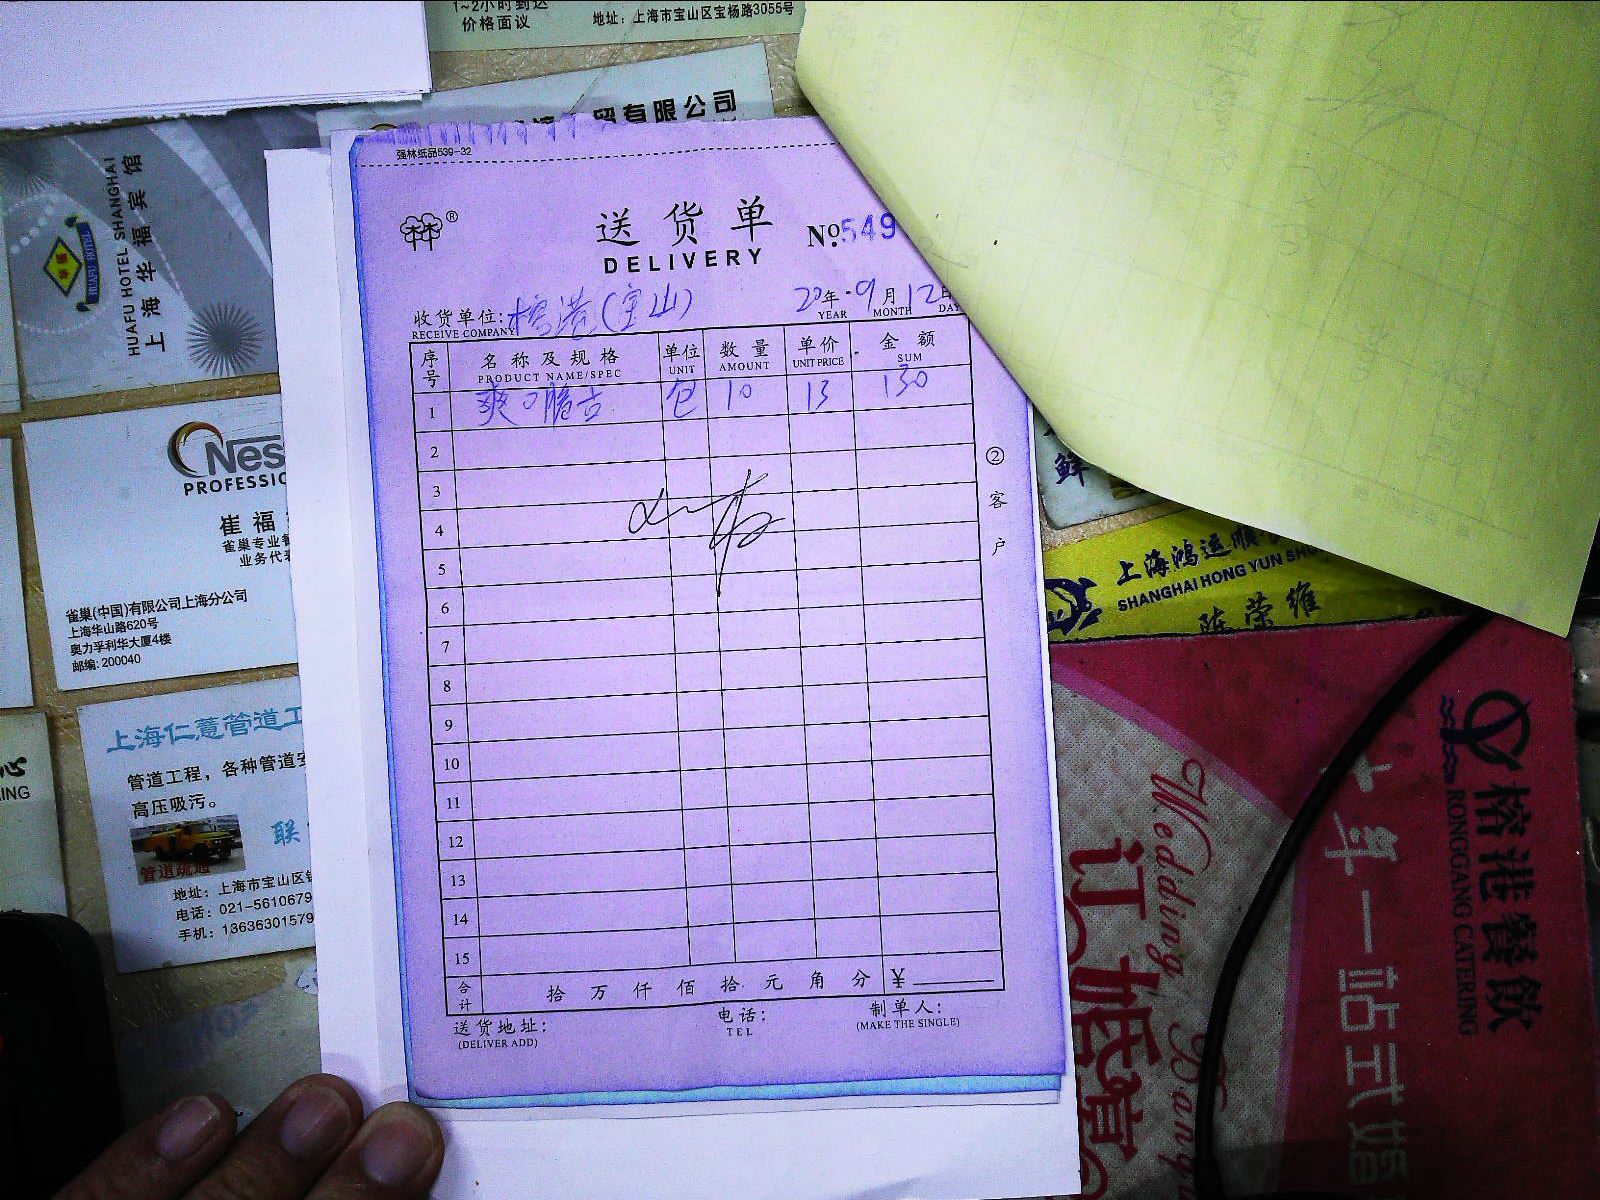 1~2小时到达
价格面议
地址：上海市宝山区宝杨路3055号
贸有限公司
HUAFU HOTEL SHANGHAI
上海华福宾馆
HUAFU HOTEL
Nes
PROFESSIO
崔福
雀巢专业餐
业务代表
雀巢(中国)有限公司上海分公司
上海华山路620号
奥力孚利华大厦4楼
邮编: 200040
上海仁薏管道工
管道工程，各种管道安
高压吸污。
联
管道疏通
地址：上海市宝山区
电话：021-5610679
手机：13636301579
心
ING
强林纸品539-32
林 ®
送货单
DELIVERY
No. 549
收货单位: 榕港(宝山)
RECEIVE COMPANY
20年 9月12日
YEAR MONTH DAY
序号 名称及规格 单位 数量 单价 金额
PRODUCT NAME/SPEC UNIT AMOUNT UNIT PRICE SUM
1 爽口脆古 包 10 13 130
2
3
4
5
6
7
8
9
10
11
12
13
14
15
合计 拾 万 仟 佰 拾 元 角 分 ¥
送货地址: 电话: 制单人:
(DELIVER ADD) TEL (MAKE THE SINGLE)
②客户
鲜
上海鸿运顺
SHANGHAI HONG YUN SHU
陈荣维
榕港餐飲
RONGGANG CATERING
一站式婚
Wedding
订婚宴